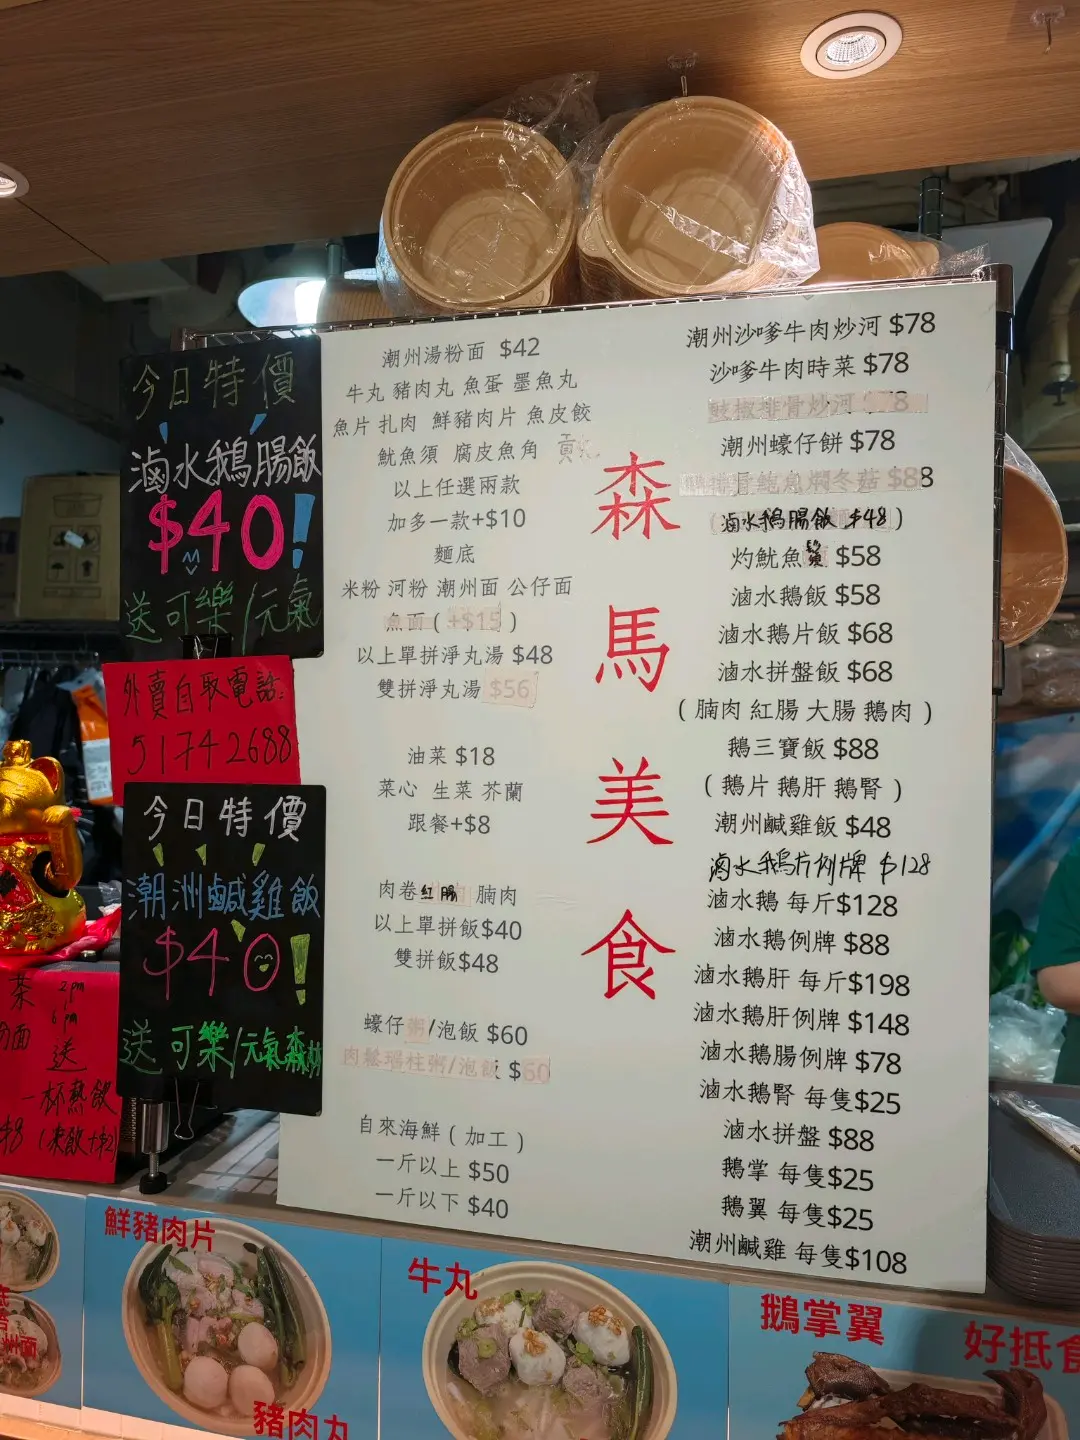 今日特價
滷水鵝腸飯
$40!
送可樂/元氣
外賣自取電話:
51742688
今日特價
潮洲鹹雞飯
$40!
送可樂/元氣森林
茶 2pm
6pm
送
一杯熱飲
(凍飲+$2)
潮州湯粉面 $42
牛丸 豬肉丸 魚蛋 墨魚丸
魚片 扎肉 鮮豬肉片 魚皮餃
魷魚須 腐皮魚角 貢丸
以上任選兩款
加多一款+$10
麵底
米粉 河粉 潮州面 公仔面
魚面 ( +$15 )
以上單拼淨丸湯 $48
雙拼淨丸湯 $56
油菜 $18
菜心 生菜 芥蘭
跟餐+$8
肉卷 紅腸 腩肉
以上單拼飯$40
雙拼飯$48
蠔仔粥/泡飯 $60
肉鬆瑤柱粥/泡飯 $60
自來海鮮 ( 加工 )
一斤以上 $50
一斤以下 $40
森馬美食
潮州沙嗲牛肉炒河 $78
沙嗲牛肉時菜 $78
豉椒排骨炒河 $78
潮州蠔仔餅 $78
鮑魚燜冬菇 $88
( 滷水鵝腸飯 $48 )
灼魷魚鬚 $58
滷水鵝飯 $58
滷水鵝片飯 $68
滷水拼盤飯 $68
( 腩肉 紅腸 大腸 鵝肉 )
鵝三寶飯 $88
( 鵝片 鵝肝 鵝腎 )
潮州鹹雞飯 $48
滷水鵝片例牌 $128
滷水鵝 每斤$128
滷水鵝例牌 $88
滷水鵝肝 每斤$198
滷水鵝肝例牌 $148
滷水鵝腸例牌 $78
滷水鵝腎 每隻$25
滷水拼盤 $88
鵝掌 每隻$25
鵝翼 每隻$25
潮州鹹雞 每隻$108
鮮豬肉片
豬肉丸
牛丸
鵝掌翼
好抵食